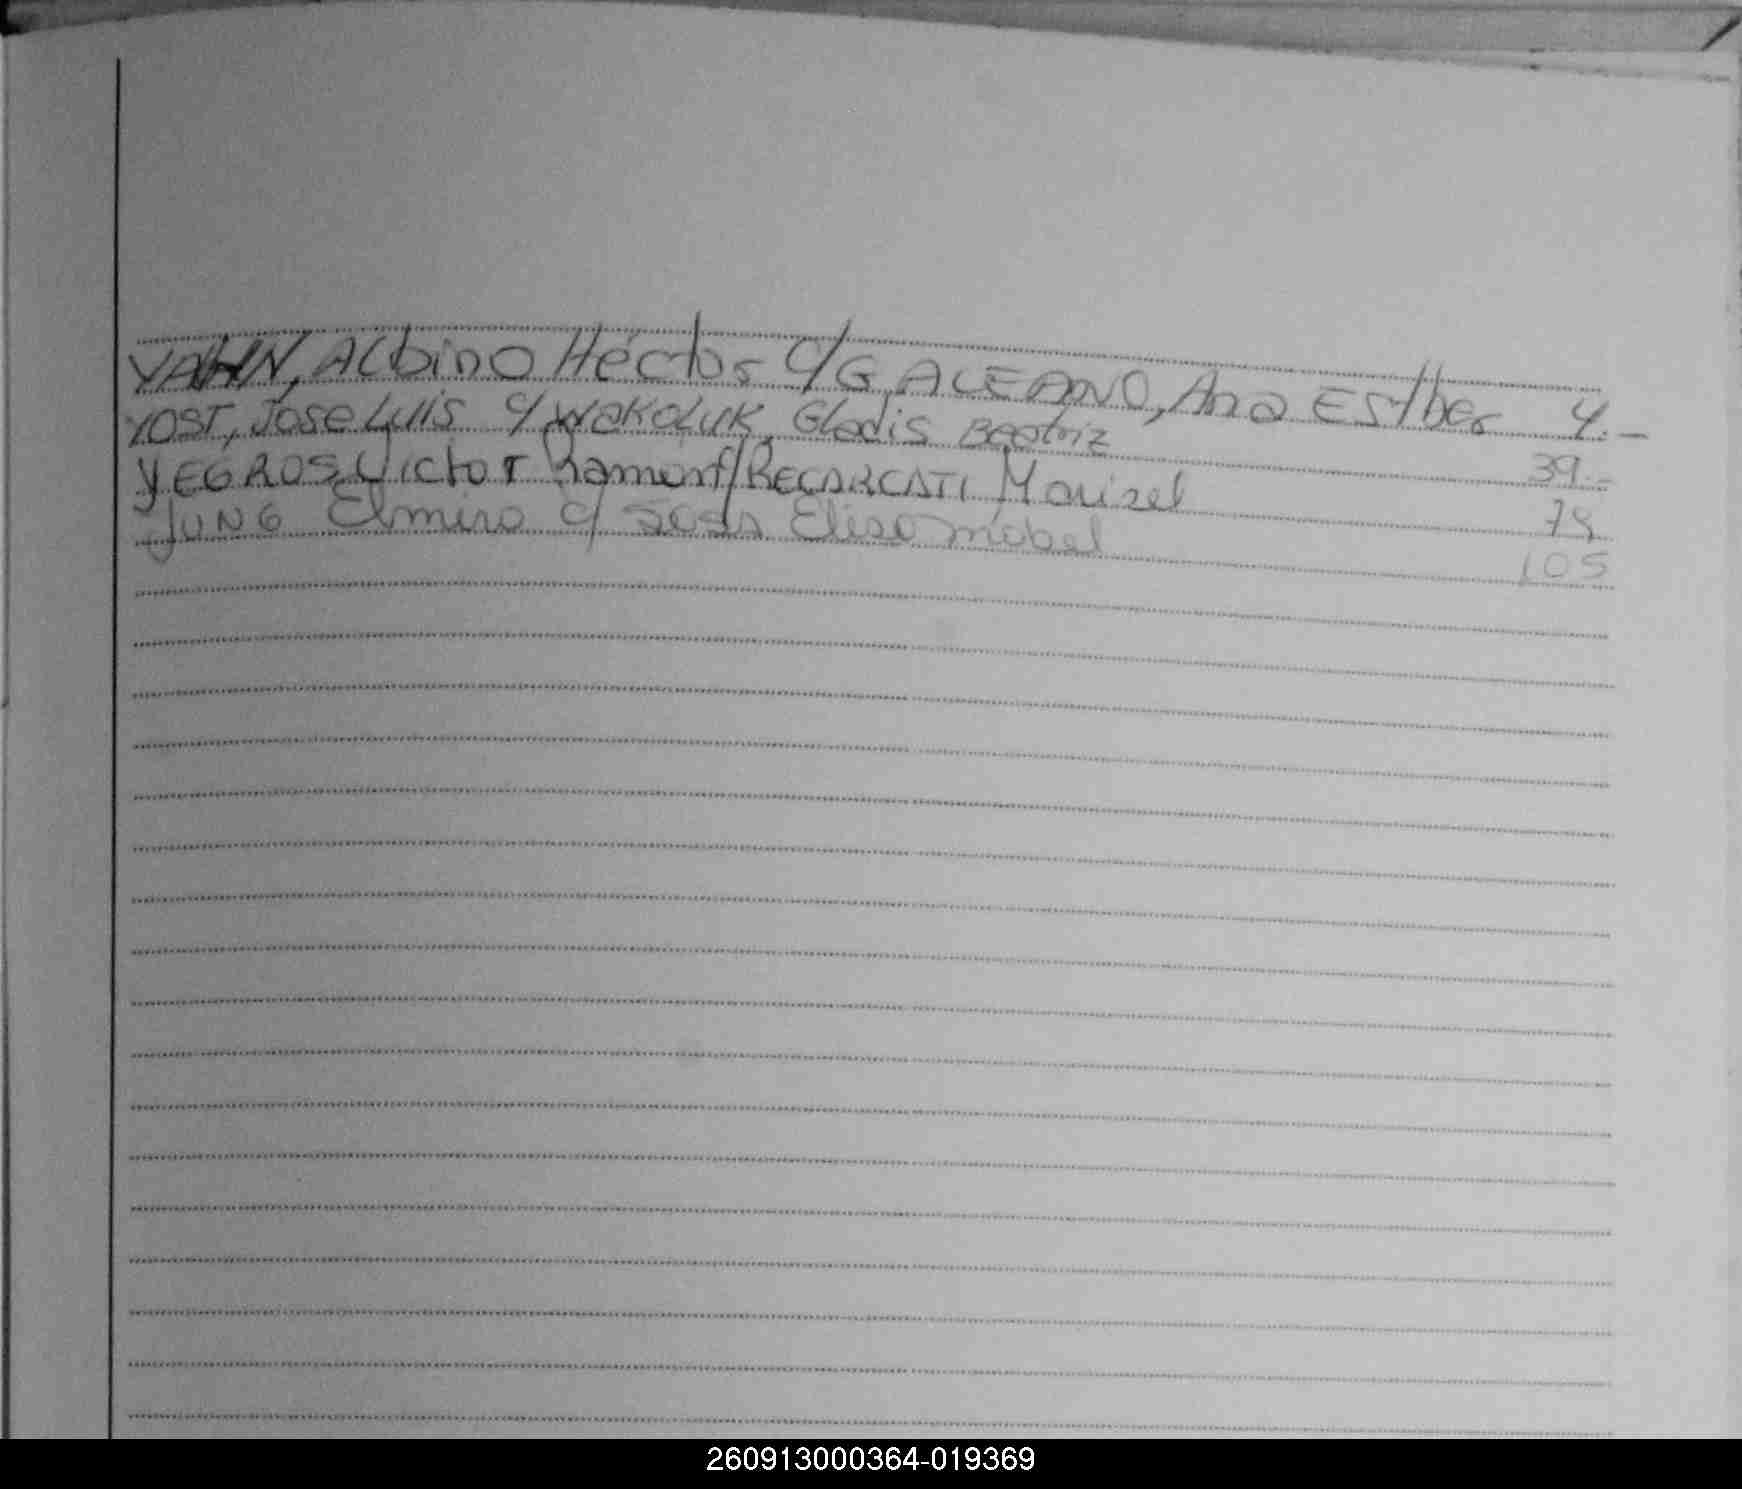 YAHN, Albino Héctor c/ GALEANO, Ana Esther 4.-
YOST, Jose Luis c/ Wakoluk, Gladis Beatriz 39.-
YEGROS Victor Ramon c/ Marisel
JUNG Elmiro c/ SOSA Elisa Mabel 105
260913000364-019369